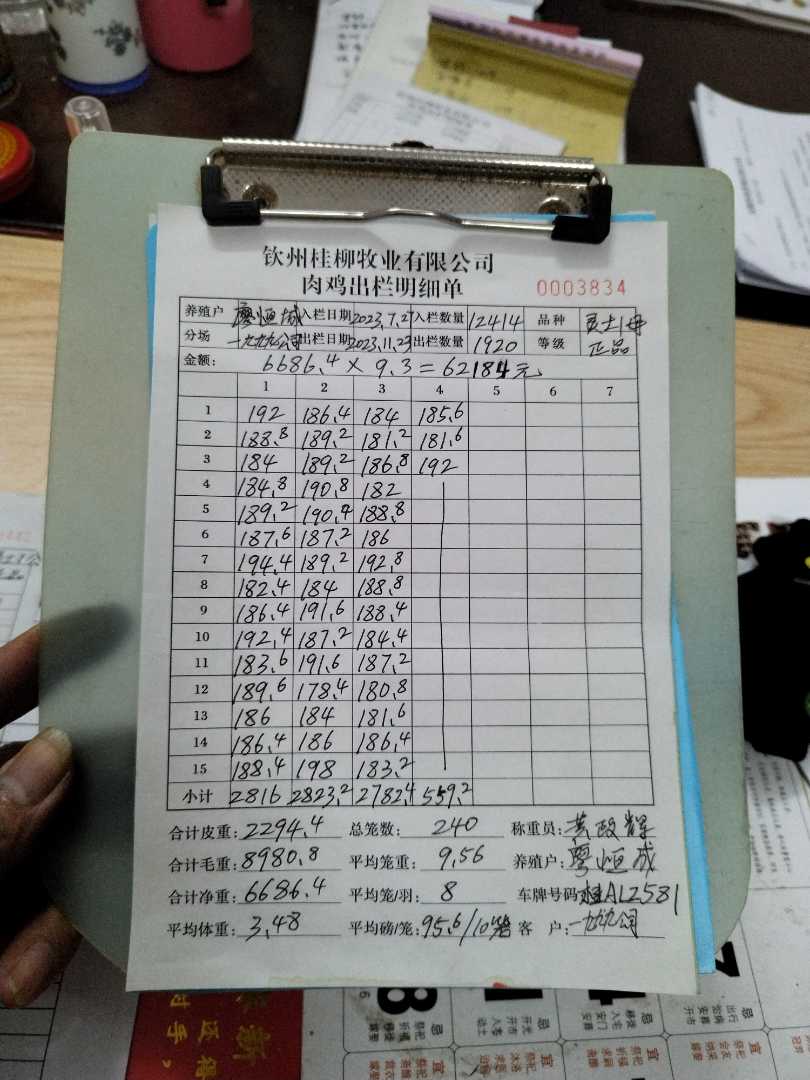 钦州桂柳牧业有限公司
肉鸡出栏明细单 0003834
养殖户 廖恒成 入栏日期 2023.7.27 入栏数量 12414 品种 灵土1号
分场 一九九九公司 出栏日期 2023.11.23 出栏数量 1920 等级 正品
金额: 6686.4 × 9.3 = 62184元
1 2 3 4 5 6 7
1 192 186.4 184 185.6
2 188.8 189.2 181.2 181.6
3 184 189.2 186.8 192
4 184.8 190.8 182
5 189.2 190.4 188.8
6 187.6 187.2 186
7 194.4 189.2 192.8
8 182.4 184 188.8
9 186.4 191.6 188.4
10 192.4 187.2 184.4
11 183.6 191.6 187.2
12 189.6 178.4 180.8
13 186 184 181.6
14 186.4 186 186.4
15 188.4 198 183.2
小计 2816 2823.2 2782.4 559.2
合计皮重: 2294.4 总笼数: 240 称重员: 黄政辉
合计毛重: 8980.8 平均笼重: 9.56 养殖户: 廖恒成
合计净重: 6686.4 平均笼/羽: 8 车牌号码: 桂AL2581
平均体重: 3.48 平均磅/笼: 95.6/10笼 客 户: